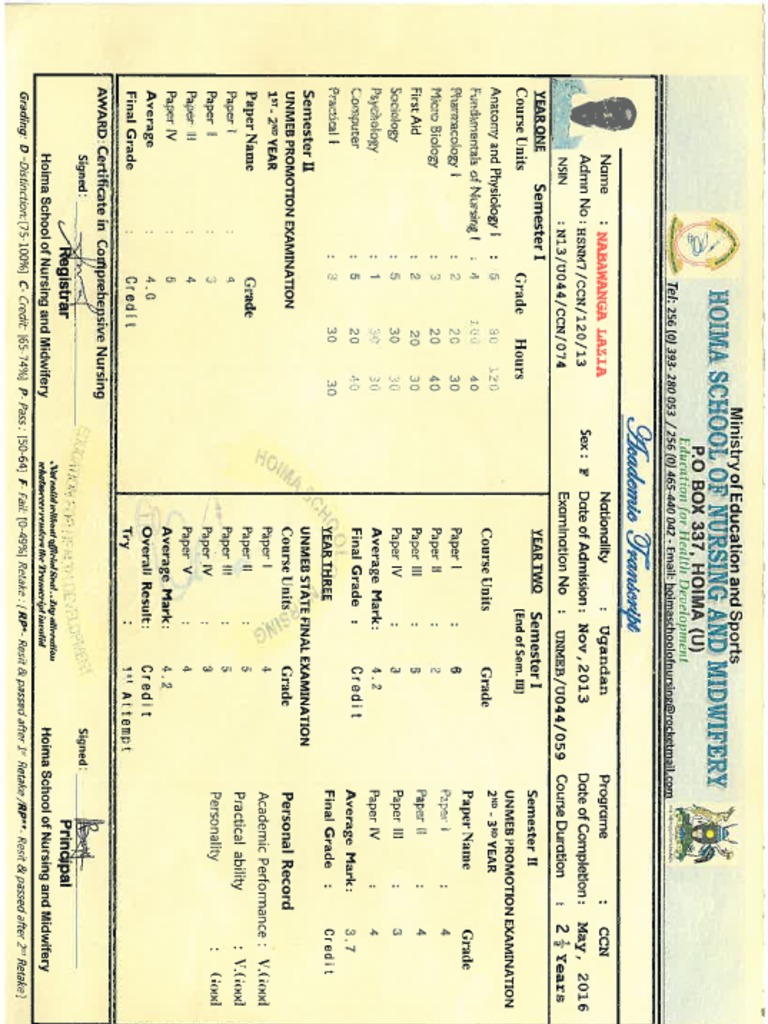 Ministry of Education and Sports
HOIMA SCHOOL OF NURSING AND MIDWIFERY
P.O BOX 337, HOIMA (U)
Education for Health Development
Tel: 256 (0) 393- 280 053 / 256 (0) 465-440 042 - Email: hoimaschoolofnursing@rocketmail.com
Academic Transcript
Name : NABAWANGA LAZIA Nationality : Ugandan Programe : CCN
Admn No : HSNM7/CCN/120/13 Sex : F Date of Admission: Nov, 2013 Date of Completion : May, 2016
NSIN : N13/U044/CCN/074 Examination No : UNMEB/U044/059 Course Duration : 2 ½ Years
YEAR ONE Semester I
Course Units Grade Hours
Anatomy and Physiology I : 5 90 120
Fundamentals of Nursing I : 4 40
Pharmacology I : 2 20 30
Micro Biology : 3 20 40
First Aid : 2 20 30
Sociology : 5 30 30
Psychology : 1 30 30
Computer : 5 20 40
Practical I : 3 30 30
Semester II
UNMEB PROMOTION EXAMINATION
1ST - 2ND YEAR
Paper Name Grade
Paper I : 4
Paper II : 3
Paper III : 4
Paper IV : 5
Average : 4.0
Final Grade : Credit
YEAR TWO Semester I
[End of Sem. III]
Course Units Grade
Paper I : 6
Paper II : 2
Paper III : 5
Paper IV : 3
Average Mark: 4.2
Final Grade : Credit
Semester II
UNMEB PROMOTION EXAMINATION
2ND - 3RD YEAR
Paper Name Grade
Paper I : 4
Paper II : 4
Paper III : 3
Paper IV : 4
Average Mark: 3.7
Final Grade : Credit
YEAR THREE
UNMEB STATE FINAL EXAMINATION
Course Units Grade
Paper I : 4
Paper II : 5
Paper III : 5
Paper IV : 3
Paper V : 4
Average Mark: 4.2
Overall Result: Credit
Try : 1st Attempt
Personal Record
Academic Performance : V.Good
Practical ability : V.Good
Personality : Good
HOIMA SCHOOL
NURSING
AWARD : Certificate in Comprehensive Nursing
Signed:
Registrar
Hoima School of Nursing and Midwifery
Not valid without official Seal. Any alteration
whatsoever renders the Transcript invalid
Signed:
Principal
Hoima School of Nursing and Midwifery
Grading: D -Distinction: [75-100%] C- Credit: [65-74%] P- Pass : [50-64] F- Fail: [0-49%] Retake : [ RP*- Resit & passed after 1st Retake /RP**- Resit & passed after 2nd Retake]